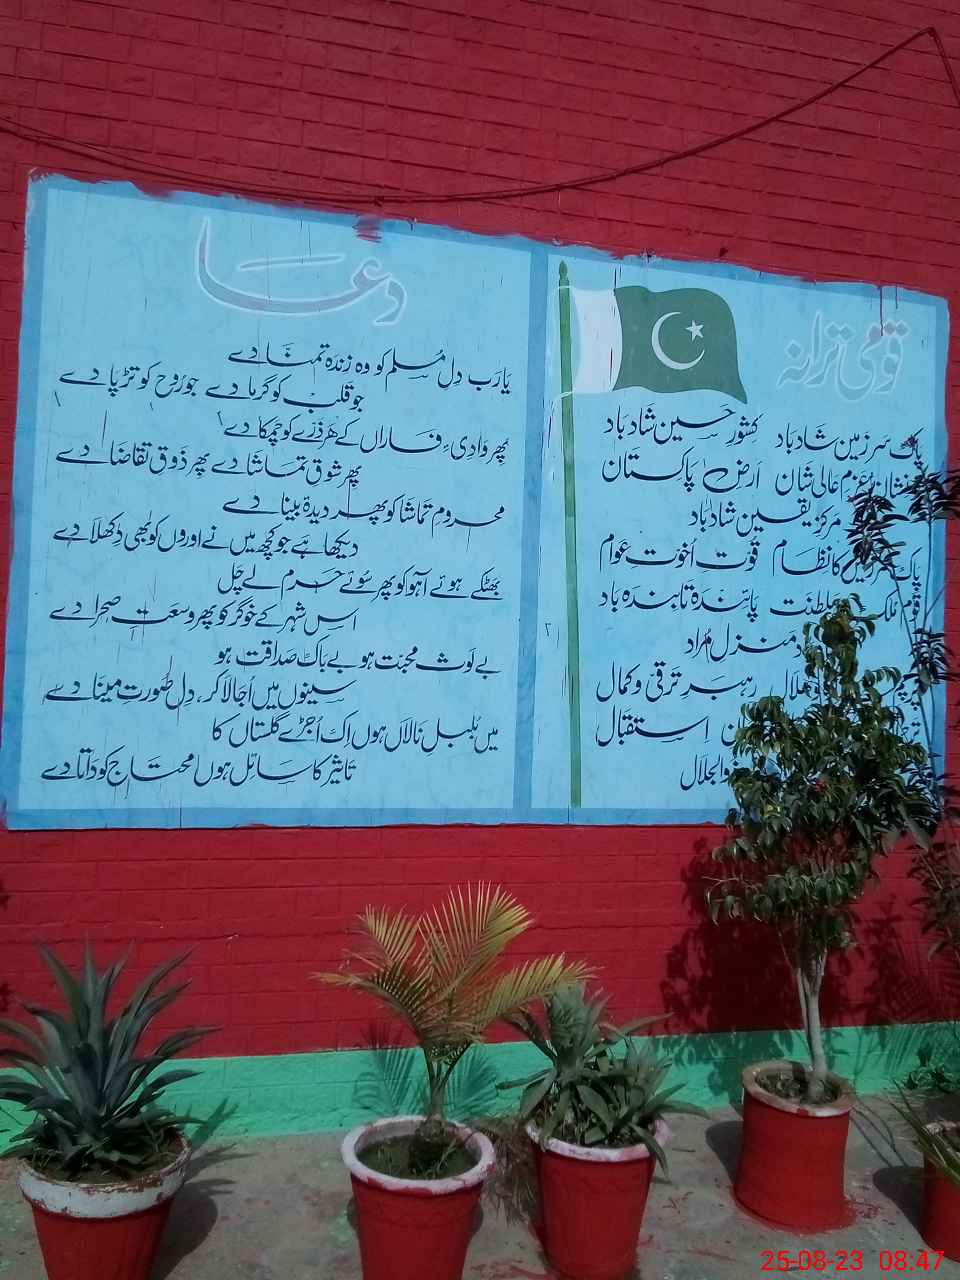 قومی ترانہ
پاک سَرزمین شَاد باد کِشورِ حَسین شَاد بَاد
نشانِ عَزمِ عَالی شَان اَرضِ پَاکِستان
مَرکزِ یقین شاد باد
پاک سرزمین کا نظام قوتِ اُخوتِ عوام
قوم ملک سلطنت پائندہ تابندہ باد
منزلِ مُراد
پرچم ہلال رہبرِ ترقی و کمال
اِستقبال
ذوالجلال
دعا
یَا رَب دِلِ مُسلم کو وہ زندہ تمنا دے
جو قلب کو گرما دے جو رُوح کو تڑپا دے
پھر وادیِ فاراں کے ھر ذرّے کو چمکا دے
پھر شوقِ تماشا دے پھر ذوقِ تقاضا دے
محرومِ تماشا کو پھر دیدۂ بینا دے
دیکھا ہے جو کچھ میں نے اوروں کو بھی دِکھلا دے
بھٹکے ہوئے آہو کو پھر سُوئے حرم لے چَل
اس شہر کے خوگر کو پھر وسعتِ صحرا دے
بے لَوث محبّت ہو بے باک صَداقت ہو
سینوں میں اُجالا کر، دِل صُورتِ مینا دے
میں بُلبلِ نَالاں ہوں اِک اُجڑے گلستاں کا
تاثیر کا سَائِل ہوں محتاج کو دَاتا دے
25-08-23 08:47